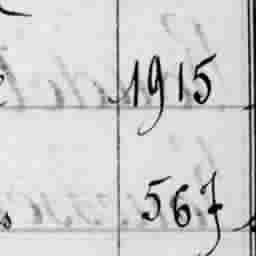 1915
567